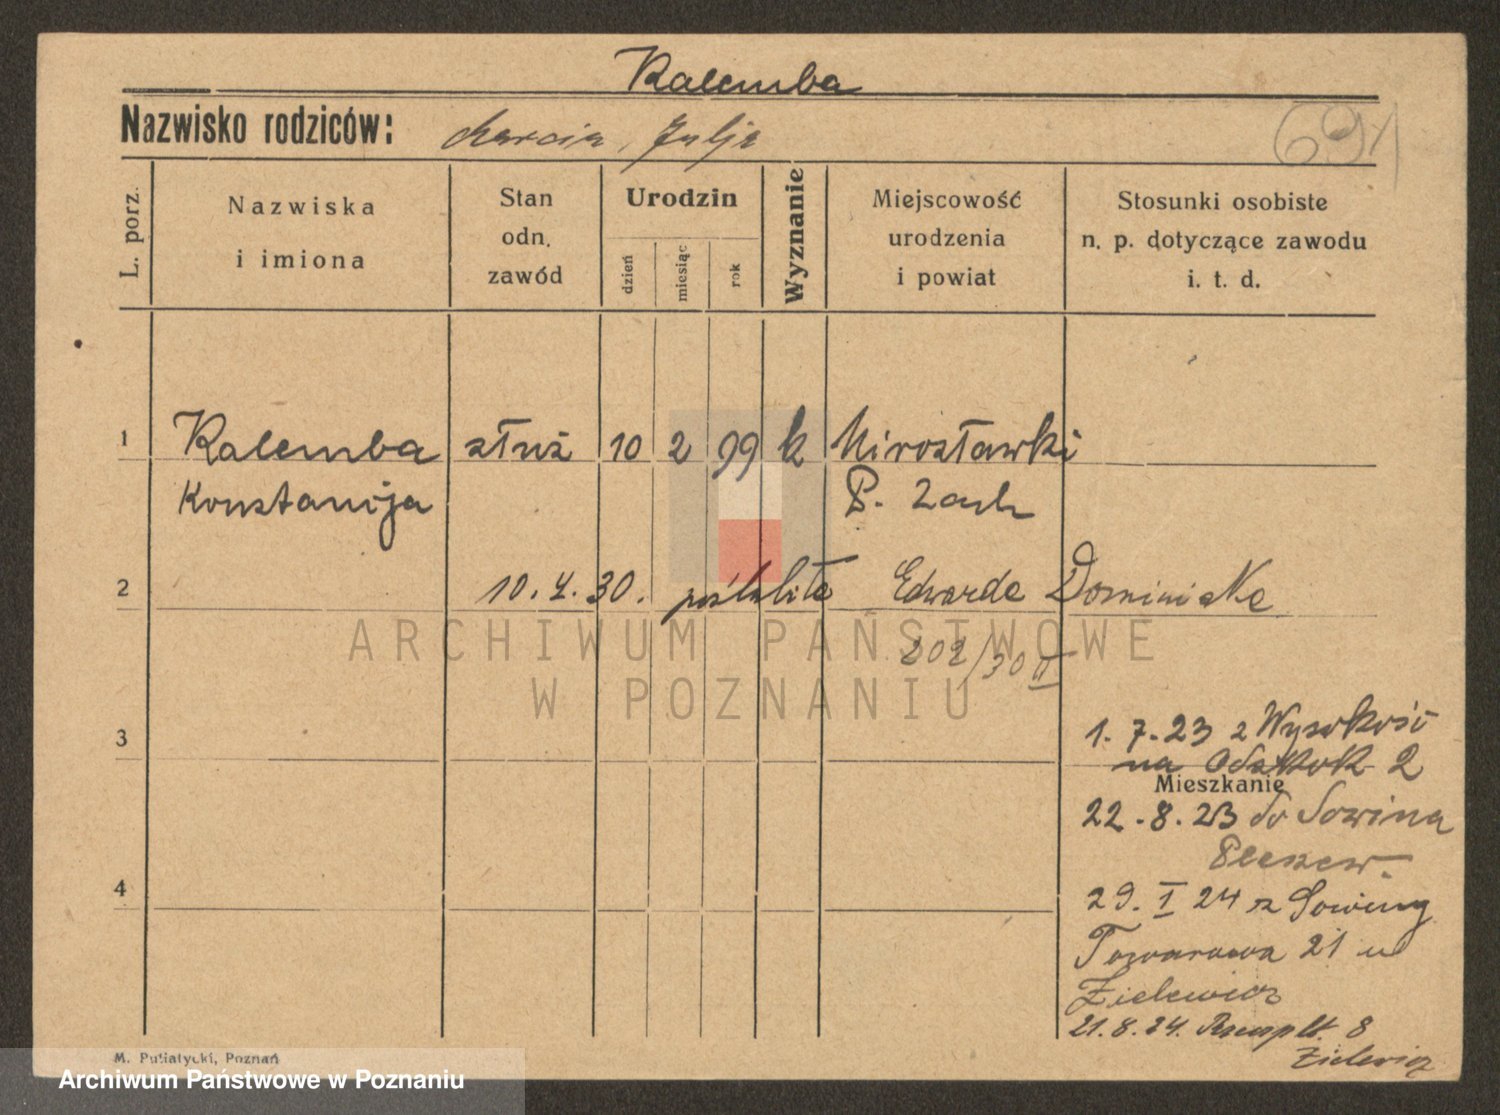 Kalemba
Nazwisko rodziców: Marcin, Julja
691
L. porz.
Nazwiska
i imiona
Stan
odn.
zawód
Urodzin
dzień
miesiąc
rok
Wyznanie
Miejscowość
urodzenia
i powiat
Stosunki osobiste
n. p. dotyczące zawodu
i. t. d.
1 Kalemba służ 10 2 99 k Mirosławki
Konstancja P. Zach
2 10.4.30. poślubiła Edwarda Dominiaka
202/30 II
3
1. 7. 23 z Wysokość
na 2
Mieszkanie
22. 8. 23 do Sowina
Pleszew.
4
29. I 24 z Sowiny
Towarowa 21 u
Zielewicz
21.8.24. 8
Zielewicz
M. Putiatycki, Poznań
ARCHIWUM PAŃSTWOWE
W POZNANIU
Archiwum Państwowe w Poznaniu